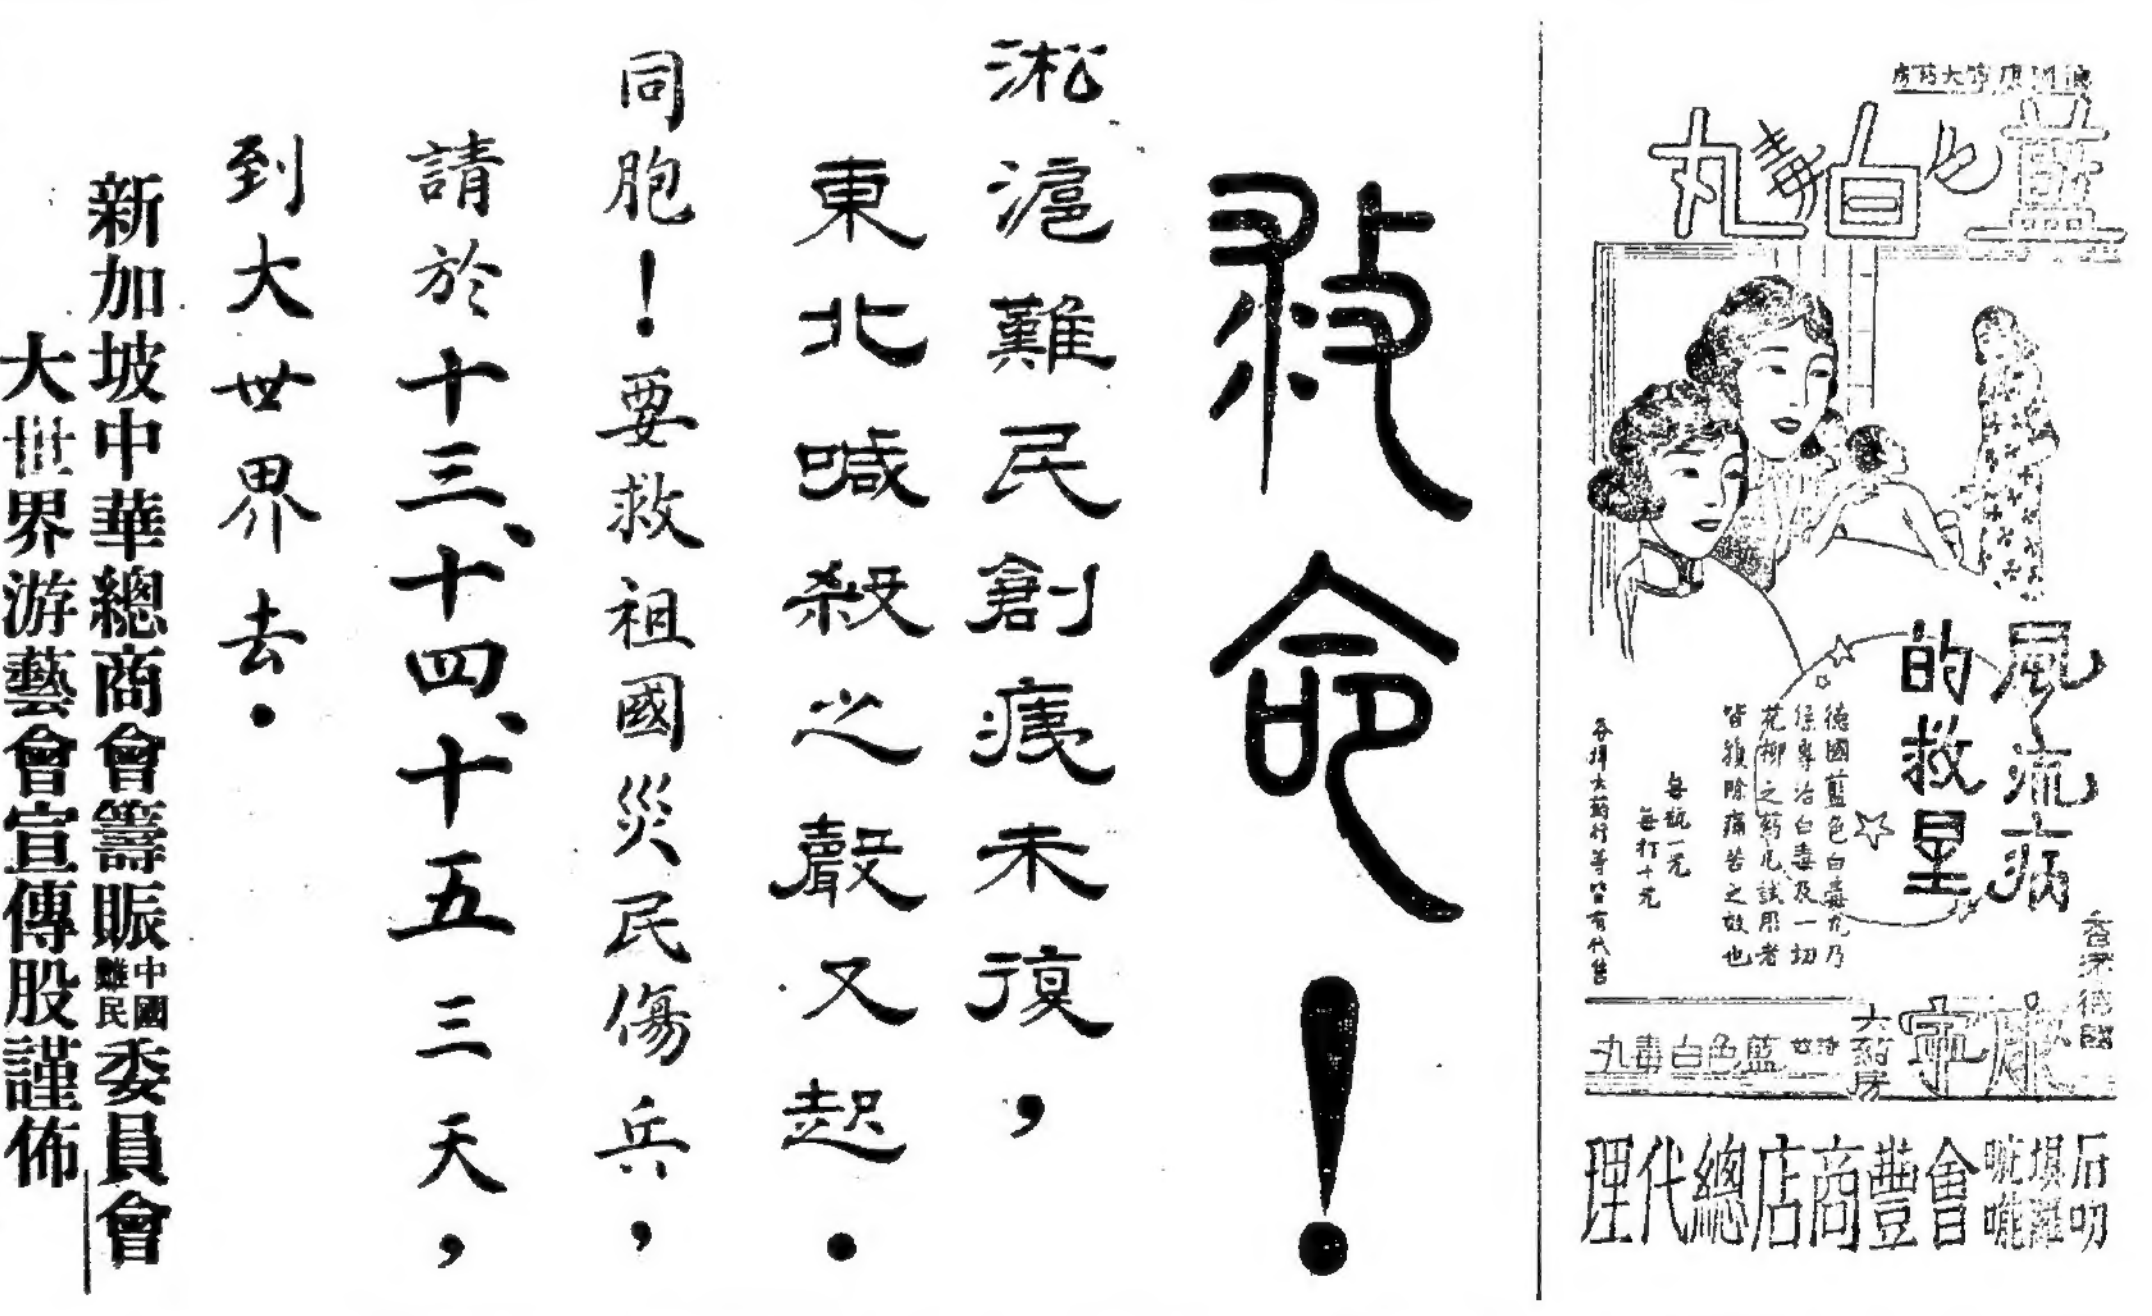 藍色白毒丸
風流病
的救星
德國藍色白毒丸乃
專治白毒及一切
花柳之药凡試用者
皆獲除痛苦之效也
每瓶一元
每打十元
各埠大药行等皆有代售
香港德國
康寧
大药房
藍色白毒丸
石叻
會豐商店總代理
救命！
淞滬難民創痍未復，
東北喊殺之聲又起．
同胞！要救祖國災民傷兵，
請於十三、十四、十五三天，
到大世界去．
新加坡中華總商會籌賑中國難民委員會
大世界游藝會宣傳股謹佈